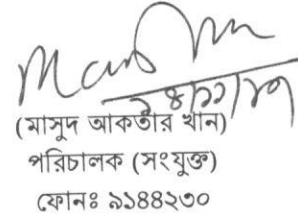 (মাসুদ আকতার খান)
পরিচালক (সংযুক্ত)
ফোনঃ ৯১৪৪২৩০